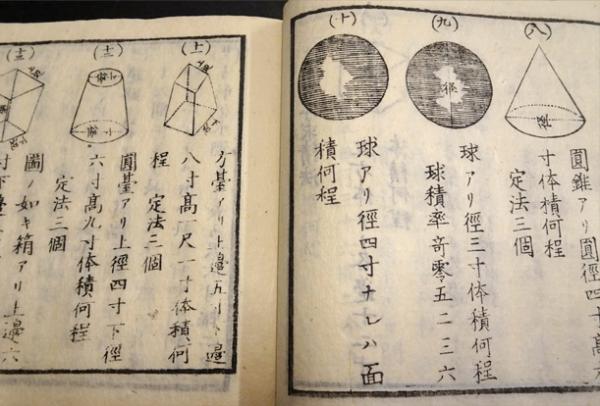 (八)
徑
圓錐アリ圓徑四寸高六
寸体積何程
定法三個
(九)
徑
球アリ徑三寸体積何程
球積率奇零五二三六
(十)
球アリ徑四寸ナレハ面
積何程
(十一)
方臺アリ上邊五寸下邊
八寸高一尺一寸体積何
程 定法三個
(十二)
圓臺アリ上徑四寸下徑
六寸高九寸体積何程
定法三個
(十三)
圖ノ如キ箱アリ上邊六
寸下邊